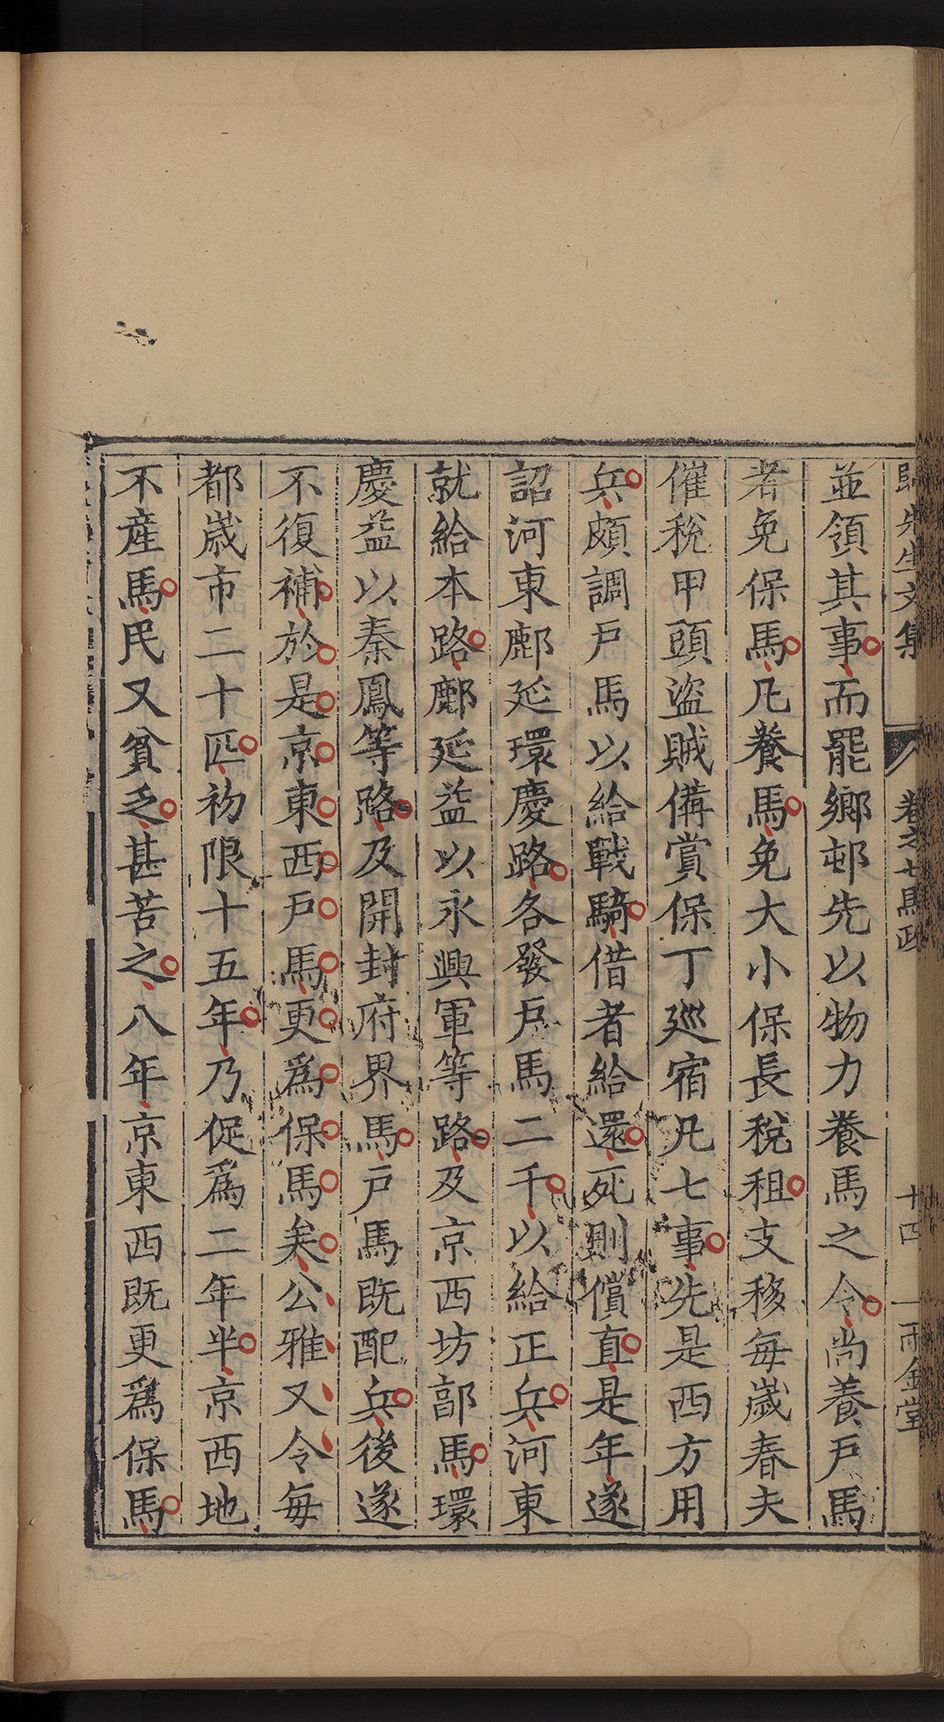 歸先生文集 卷之七馬政 十四 雨金堂
並領其事而罷鄉邨先以物力養馬之令尚養戶馬
者免保馬凡養馬免大小保長稅租支移每歲春夫
催稅甲頭盜賊備賞保丁廵宿凡七事先是西方用
兵頗調戶馬以給戰騎借者給還死則償直是年遂
詔河東鄜延環慶路各發戶馬二千以給正兵河東
就給本路鄜延益以永興軍等路及京西坊郭馬環
慶益以秦鳳等路及開封府界馬戶馬既配兵後遂
不復補於是京東西戶馬更爲保馬矣公雅又令每
都歲市二十匹初限十五年乃促爲二年半京西地
不產馬民又貧乏甚苦之八年京東西既更爲保馬